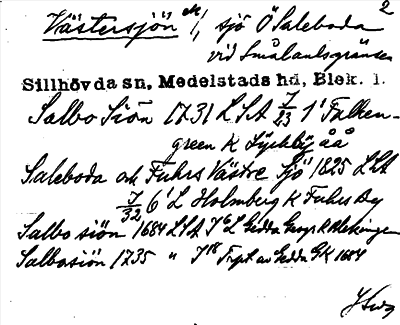 Västersjön 1/1 sjö Ö Saleboda 2
vid Smålandsgränsen
Sillhövda sn, Medelstads hd, Blek. l.
Salbo Siön 1731 LSA J/23 1' Falken-
green K Lyckby åå
Saleboda och Fuhrs Västre Sjö 1825 LSA
J/32 6' L Holmberg K Fuhrs By
Salbo siön 1684 LSA J6 L Gedda Geogr K Blekingen
Salbosiön 1735 " J18 Trpt av Gedda GK 1684